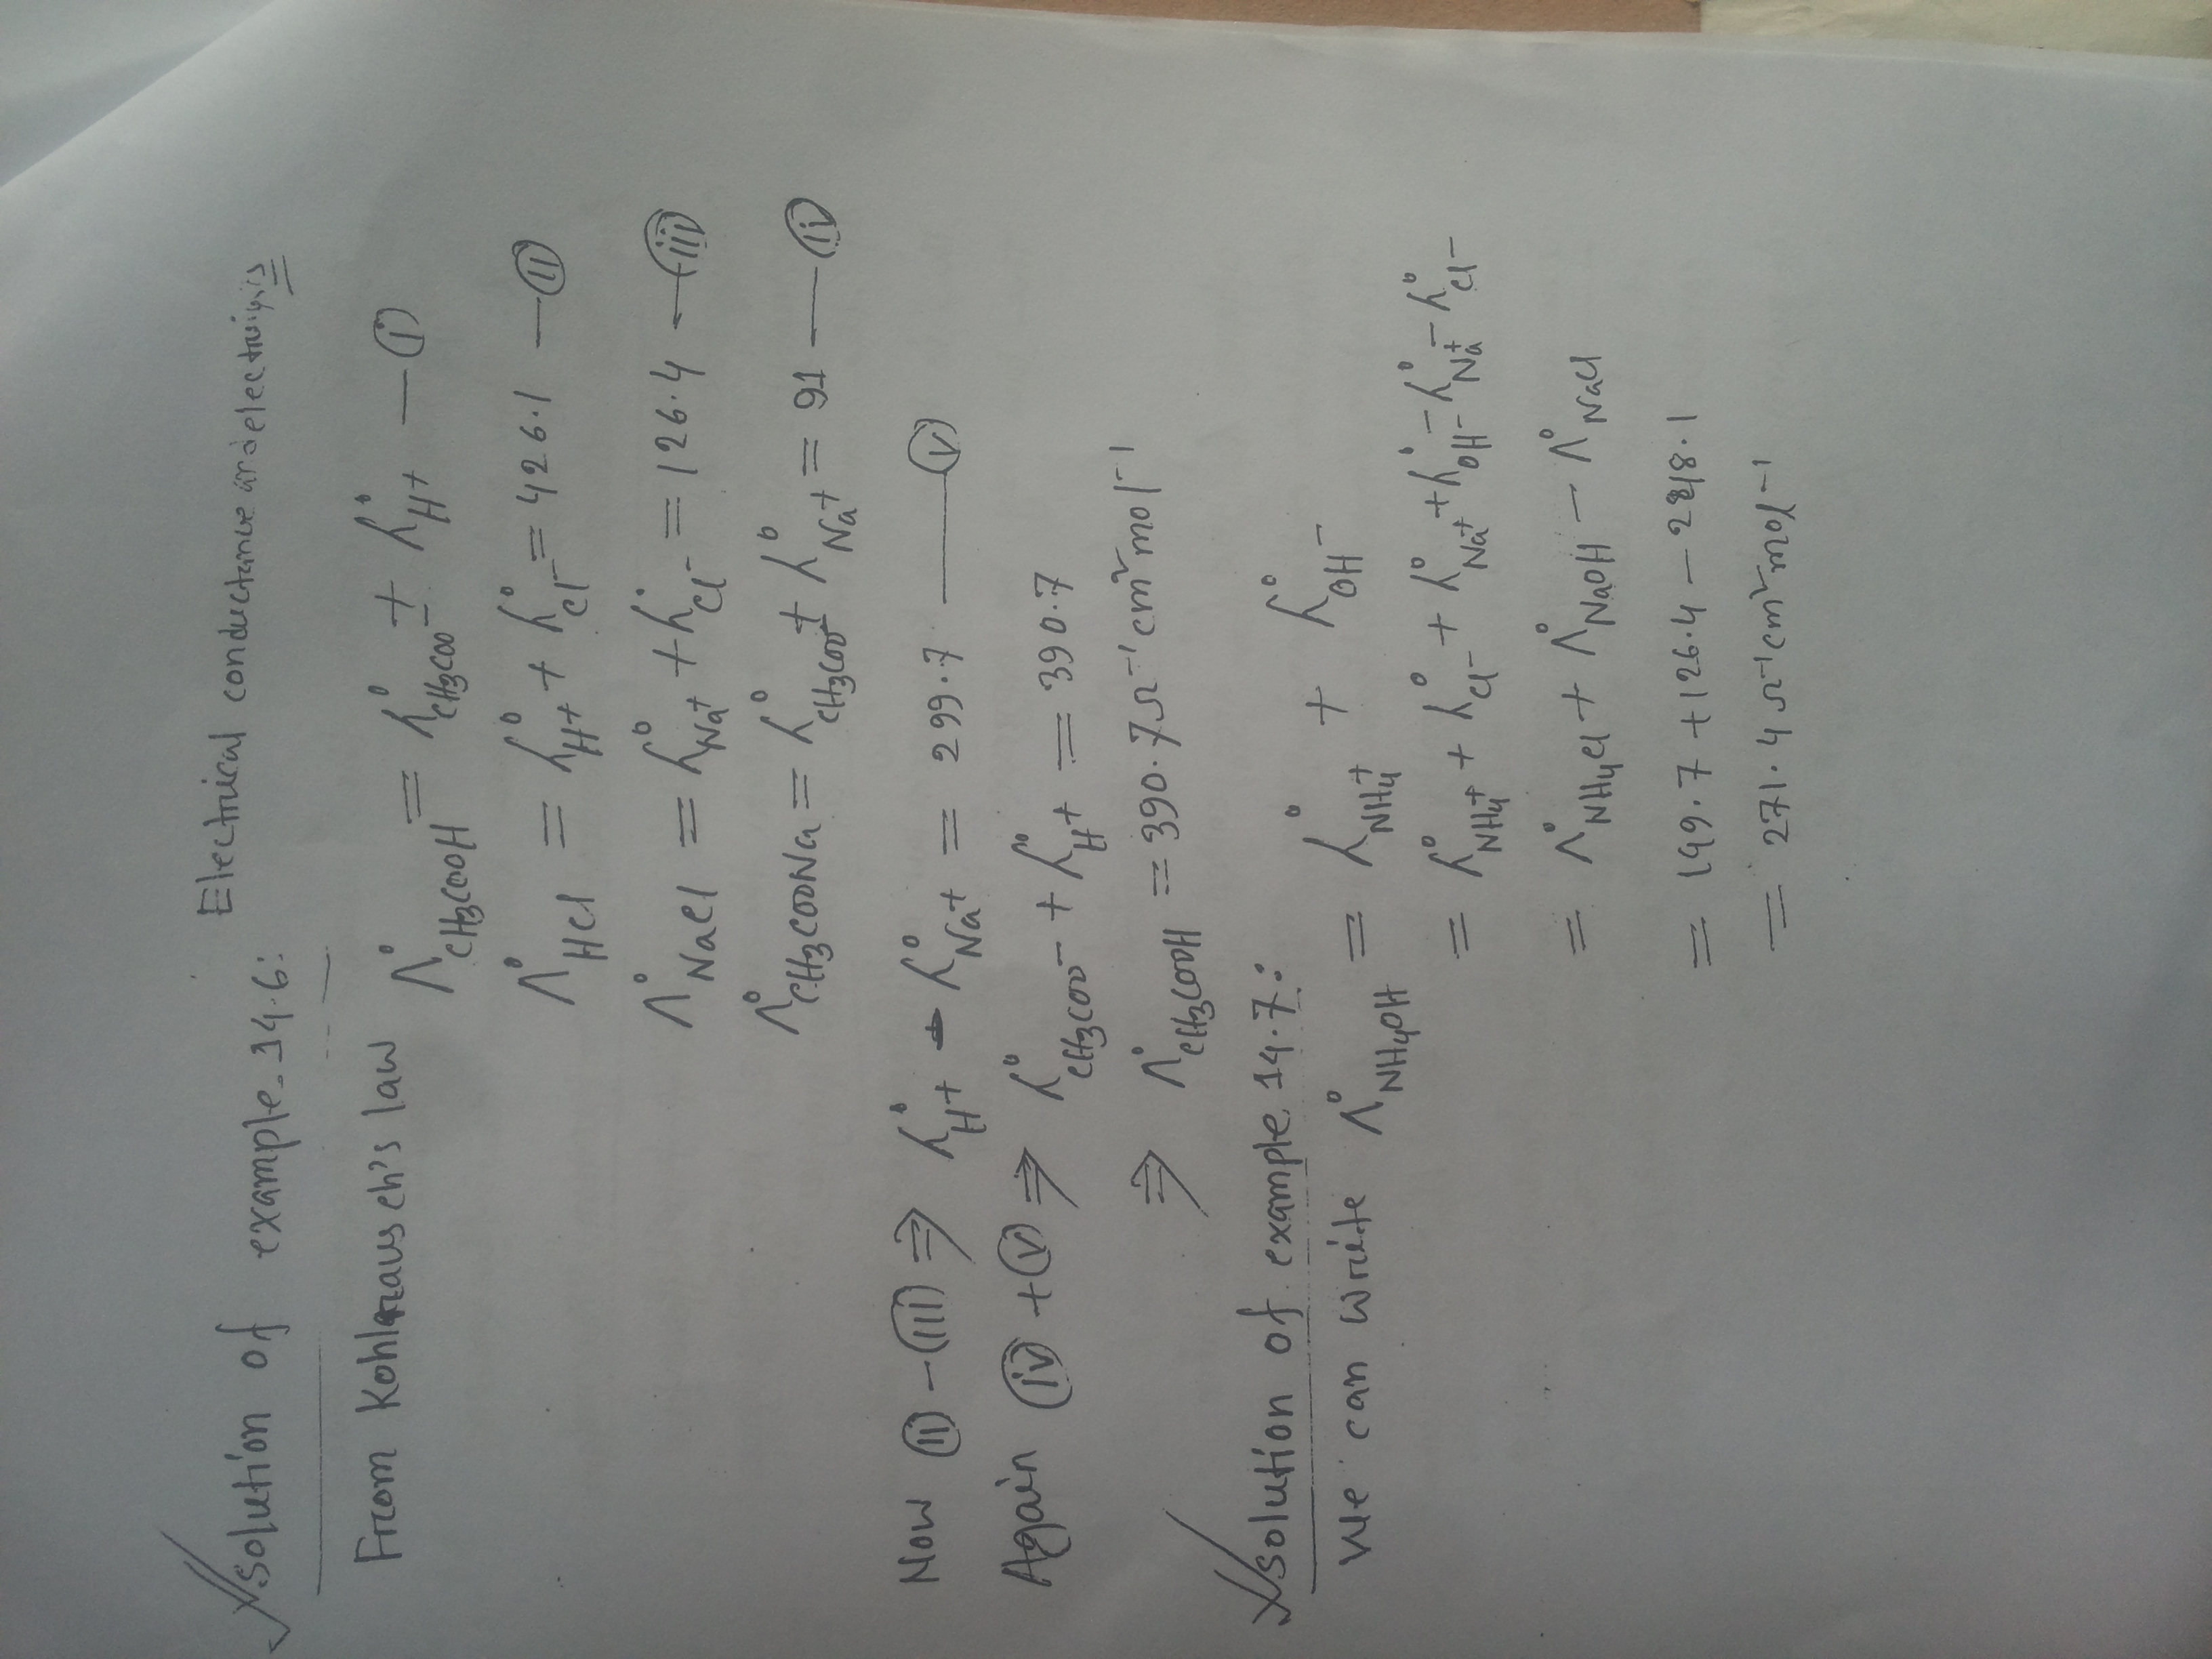 Solution of example.14.6: Electrical conductance and electrolysis
From Kohlrausch's law Λ°CH3COOH = λ°CH3COO- + λ°H+ — (i)
Λ°HCl = λ°H+ + λ°Cl- = 426.1 — (ii)
Λ°NaCl = λ°Na+ + λ°Cl- = 126.4 — (iii)
Λ°CH3COONa = λ°CH3COO- + λ°Na+ = 91 — (iv)
Now (ii) - (iii) ⇒ λ°H+ - λ°Na+ = 299.7 — (v)
Again (iv) + (v) ⇒ λ°CH3COO- + λ°H+ = 390.7
⇒ Λ°CH3COOH = 390.7 Ω-1 cm2 mol-1
Solution of example 14.7:
We can write Λ°NH4OH = λ°NH4+ + λ°OH-
= λ°NH4+ + λ°Cl- + λ°Na+ + λ°OH- - λ°Na+ - λ°Cl-
= Λ°NH4Cl + Λ°NaOH - Λ°NaCl
= 149.7 + 126.4 - 248.1
= 271.4 Ω-1 cm2 mol-1